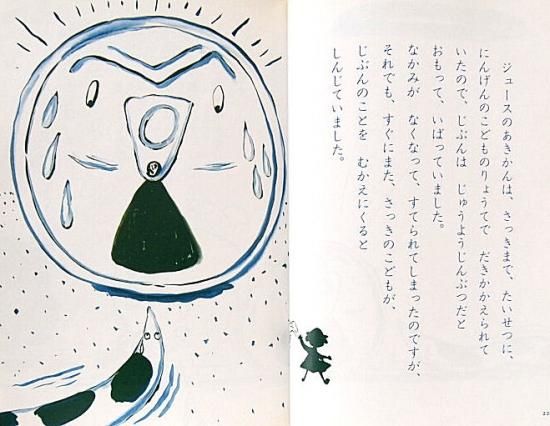 ジュースのあきかんは、さっきまで、たいせつに、
にんげんのこどものりょうてで だきかかえられて
いたので、じぶんは じゅうようじんぶつだと
おもって、いばっていました。
なかみが なくなって、すてられてしまったのですが、
それでも、すぐにまた、さっきのこどもが、
じぶんのことを むかえにくると
しんじていました。